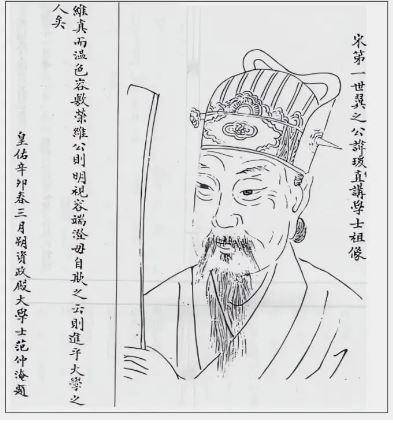 宋第一世翼之公諱瑗直講學士祖像
維真而温色容數榮維公則明視容端澄毋自欺之云則進乎大學之
人矣
皇佑辛卯春三月朔資政殿大學士范仲淹題